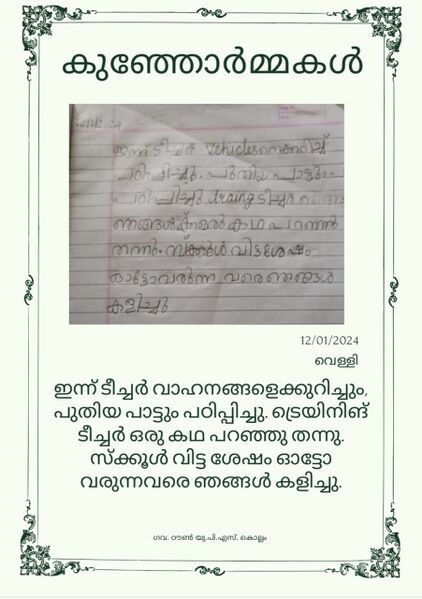 കുഞ്ഞോർമ്മകൾ
ഇന്ന് ടീച്ചർ vehiclesനെക്കുറിച്ച്
പഠിപ്പിച്ചു. പുതിയ പാട്ടും
പഠിപ്പിച്ചു. ടീച്ചർ
കഥ പറഞ്ഞു
തന്നു. സ്ക്കൂൾ വിട്ടശേഷം
ഓട്ടോവരുന്ന വരെ ഞങ്ങൾ
കളിച്ചു
12/01/2024
വെള്ളി
ഇന്ന് ടീച്ചർ വാഹനങ്ങളെക്കുറിച്ചും,
പുതിയ പാട്ടും പഠിപ്പിച്ചു. ട്രെയിനിങ്
ടീച്ചർ ഒരു കഥ പറഞ്ഞു തന്നു.
സ്ക്കൂൾ വിട്ട ശേഷം ഓട്ടോ
വരുന്നവരെ ഞങ്ങൾ കളിച്ചു.
ഗവ. ടൗൺ യു.പി.എസ്. കൊല്ലം